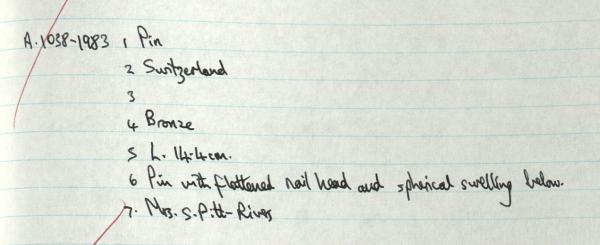 A.1038-1983 1 Pin
2 Switzerland
3
4 Bronze
5 L. 14.4cm.
6 Pin with flattened nail head and spherical swelling below.
7. Mrs. S. Pitt-Rivers